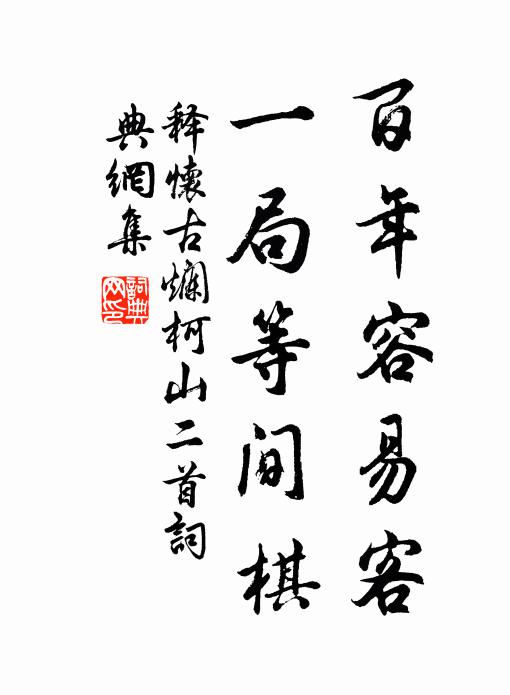 百年容易客
一局等间棋
释懷古爛柯山二首詞
典網集
詞典
网印